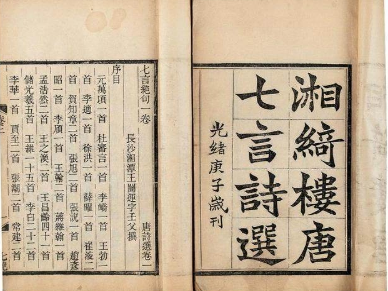 湘綺樓唐
七言詩選
光緒庚子歲刊
七言絕句一卷
唐詩選卷一
長沙湘潭王闓運字壬父撰
序目
元萬頃一首
杜審言一首
李嶠一首
王勃一
首
李適一首
徐洪一首
薛曜一首
崔液二
首
賀知章二首
張旭二首
張說一首
趙彥
昭一首
李頎一首
王翰二首
蔣維翰一首
孟浩然二首
王之渙二首
王昌齡四十一首
儲光羲五首
王維一十五首
李白二十二首
李華一首
賈至二首
張潮一首
常建二首